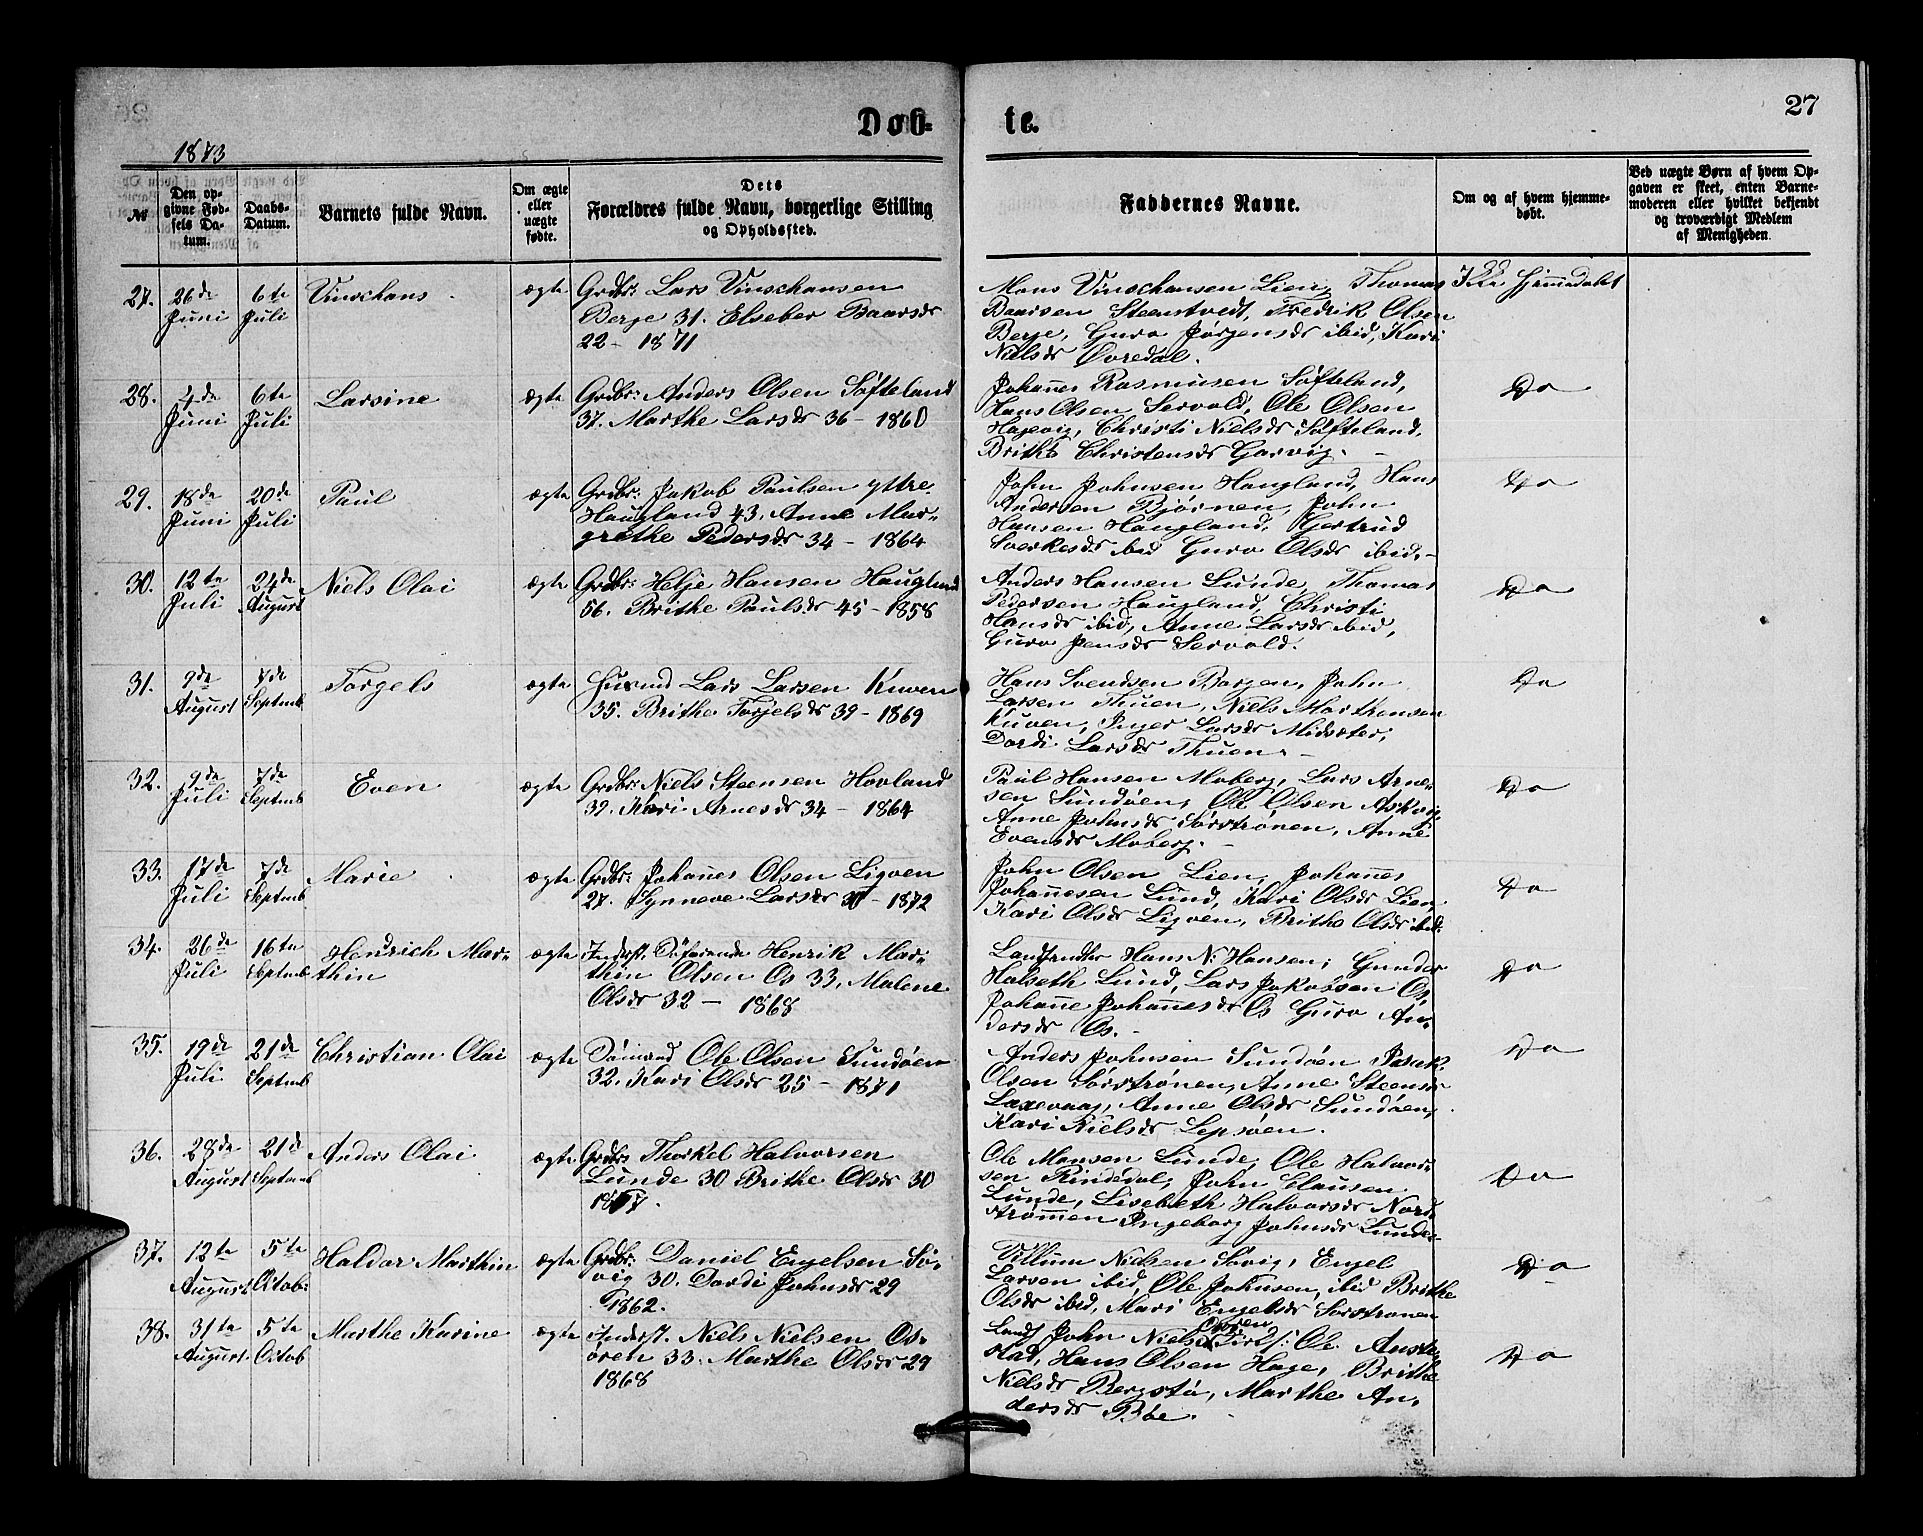 27
Døb-
te.
1873
№
Den op-
givne Fød-
sels Da-
tum.
Daabs-
Datum.
Barnets fulde Navn.
Om ægte
eller
uægte
fødte.
Dets
Forældres fulde Navn, borgerlige Stilling
og Opholdssted.
Faddernes Navne.
Om og af hvem hjemme-
døbt.
Ved uægte Børn af hvem Op-
gaven er skeet, enten Barne-
moderen eller hvilket bekjendt
og troværdigt Medlem
af Menigheden.
27.
26de
Juni
6te
Juli
Vinschans
ægte
Grdbr: Lars Vinschansen
Berge 31. Elseber Baarsdr
22 - 1871
Mons Vinschansen Lien, Thomas
Baarsen Steenstvedt, Fredrik Olsen
Berge, Guro Jørgensdr ibid, Kari
Nielsdr Øvredal.
Ikke Hjemmedøbt
28.
4de
Juni
6te
Juli
Larsine
ægte
Grdbr: Anders Olsen Søfteland
37. Marthe Larsdr 36 - 1860
Johannes Rasmusen Søfteland,
Hans Olsen Servold, Ole Olsen
Hagevig, Christi Nielsdr Søfteland,
Britha Christensdr Garvig. -
Do
29.
18de
Juni
20de
Juli
Paul
ægte
Grdbr: Jakob Paulsen yttre
Haugland 43. Anne Mar-
grethe Pedersdr 34 - 1864
John Johnsen Haugland, Hans
Andersen Bjørnen, John
Hansen Haugland. Gjertrud
Sverkesdr ibid Guro Olsdr ibid. -
Do
30.
12te
Juli
24de
August
Niels Olai
ægte
Grdbr: Helje Hansen Haugland
56. Brithe Paulsdr 45 - 1858
Anders Hansen Lunde, Thomas
Pedersen Haugland, Christi
Hansdr ibid, Anne Larsdr ibid,
Guro Jensdr Servold.
Do
31.
9de
August
7de
Septmb
Torgels
ægte
Husmd Lars Larsen Kuven
35. Brithe Torjelsdr 39 - 1869
Hans Svendsen Borgen, John
Larsen Thuen, Niels Morthensen
Kuven, Inger Larsdr Midsæter,
Dordi Larsdr Thuen. -
Do
32.
9de
Juli
7de
Septmb
Even
ægte
Grdbr: Niels Steensen Hovland
39. Kari Arnesdr 34 - 1864
Paul Hansen Moberg, Lars Arne-
sen Sundøen, Ole Olsen Askvig,
Anne Johnsdr Sørstrønen, Anne
Evensdr Moberg. -
Do
33.
17de
Juli
7de
Septmb
Marie
ægte
Grdbr: Johannes Olsen Ligven
27. Synneve Larsdr 30 - 1872
John Olsen Lien, Johannes
Johannesen Lund, Kari Olsdr Lien,
Kari Olsdr Ligven, Brithe Olsdr ibid.
Do
34.
26de
Juli
16te
Septmb
Hendrich Mar-
thin
ægte
Inderst. Søfarende Henrik Mar-
thin Olsen Os 33, Malene
Olsdr 32 - 1868
Landhandler Hans N. Hansen, Gunder
Halseth Lund, Lars Jakobsen Os,
Johanne Johannesdr Os Guro An-
dersdr Os. -
Do
35.
19de
Juli
21de
Septmb
Christian Olai
ægte
Sømand Ole Olsen Sundøen
32. Kari Olsdr 25 - 1871
Anders Johnsen Sundøen Isak
Olsen Sørstrønen, Anne Steensdr
Laxevaag, Anne Olsdr Sundøen,
Kari Nielsdr Lepsøen.
Do
36.
28de
August
21de
Septmb
Anders Olai
ægte
Grdbr: Thorkel Halvorsen
Lunde 30 Brithe Olsdr 30
Ole Monsen Lunde, Ole Halvor-
sen Rindedal, John Clausen
Lunde, Lisebeth Halvorsdr Nord-
strømmen Ingeborg Johnsdr Lunde -
Do
37.
12te
August
5te
Octob.
Haldor Marthin
ægte
Grdbr: Daniel Engelsen Sø-
vig 30. Dordi Johnsdr 29
1862.
Villum Nielsen Søvig, Engel
Larsen ibid, Ole Johnsen ibid Brithe
Olsdr ibid, Mari Engelsdr Sørstrønen
Do
38.
31te
August
5te
Octob
Marthe Karine
ægte
Inderst. Niels Nielsen Os-
øren 33. Marthe Olsdr 29
1868
Landh John Nielsen Osøren Ole Auste-
stad, Hans Olsen Hage, Brithe
Nielsdr Bergstø, Marthe An-
dersdr Bøe.
Do